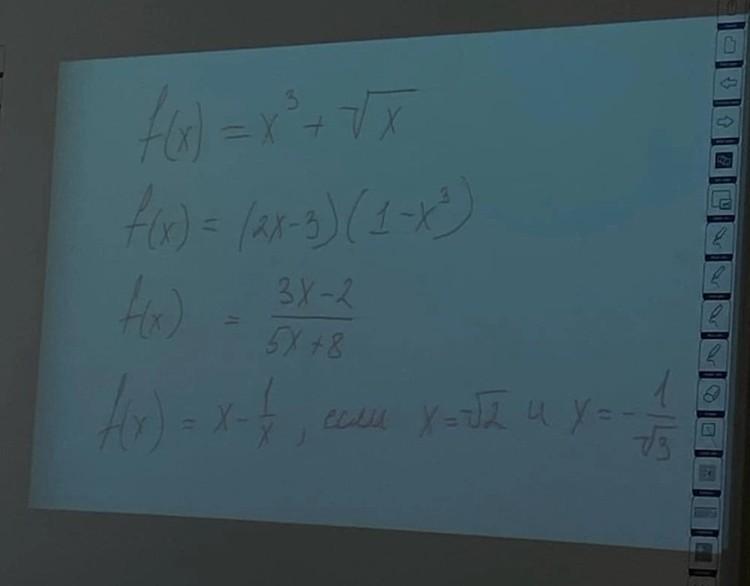 f(x) = x³ + √x
f(x) = (2x-3)(1-x³)
f(x) = (3x-2)/(5x+8)
f(x) = x - 1/x, если x = √2 и x = -1/√3